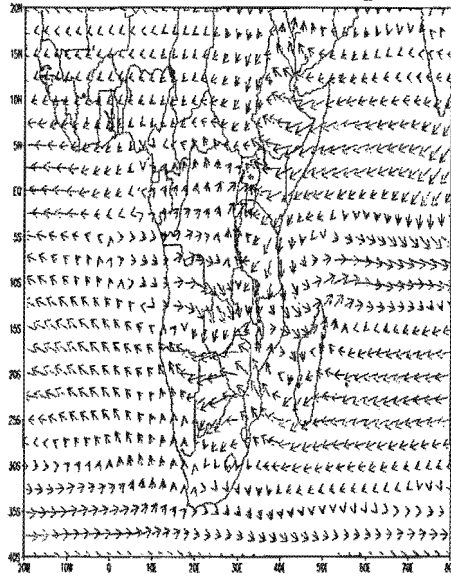 20N
15N
10N
5N
EQ
5S
10S
15S
20S
25S
30S
35S
40S
20W 10W 0 10E 20E 30E 40E 50E 60E 70E